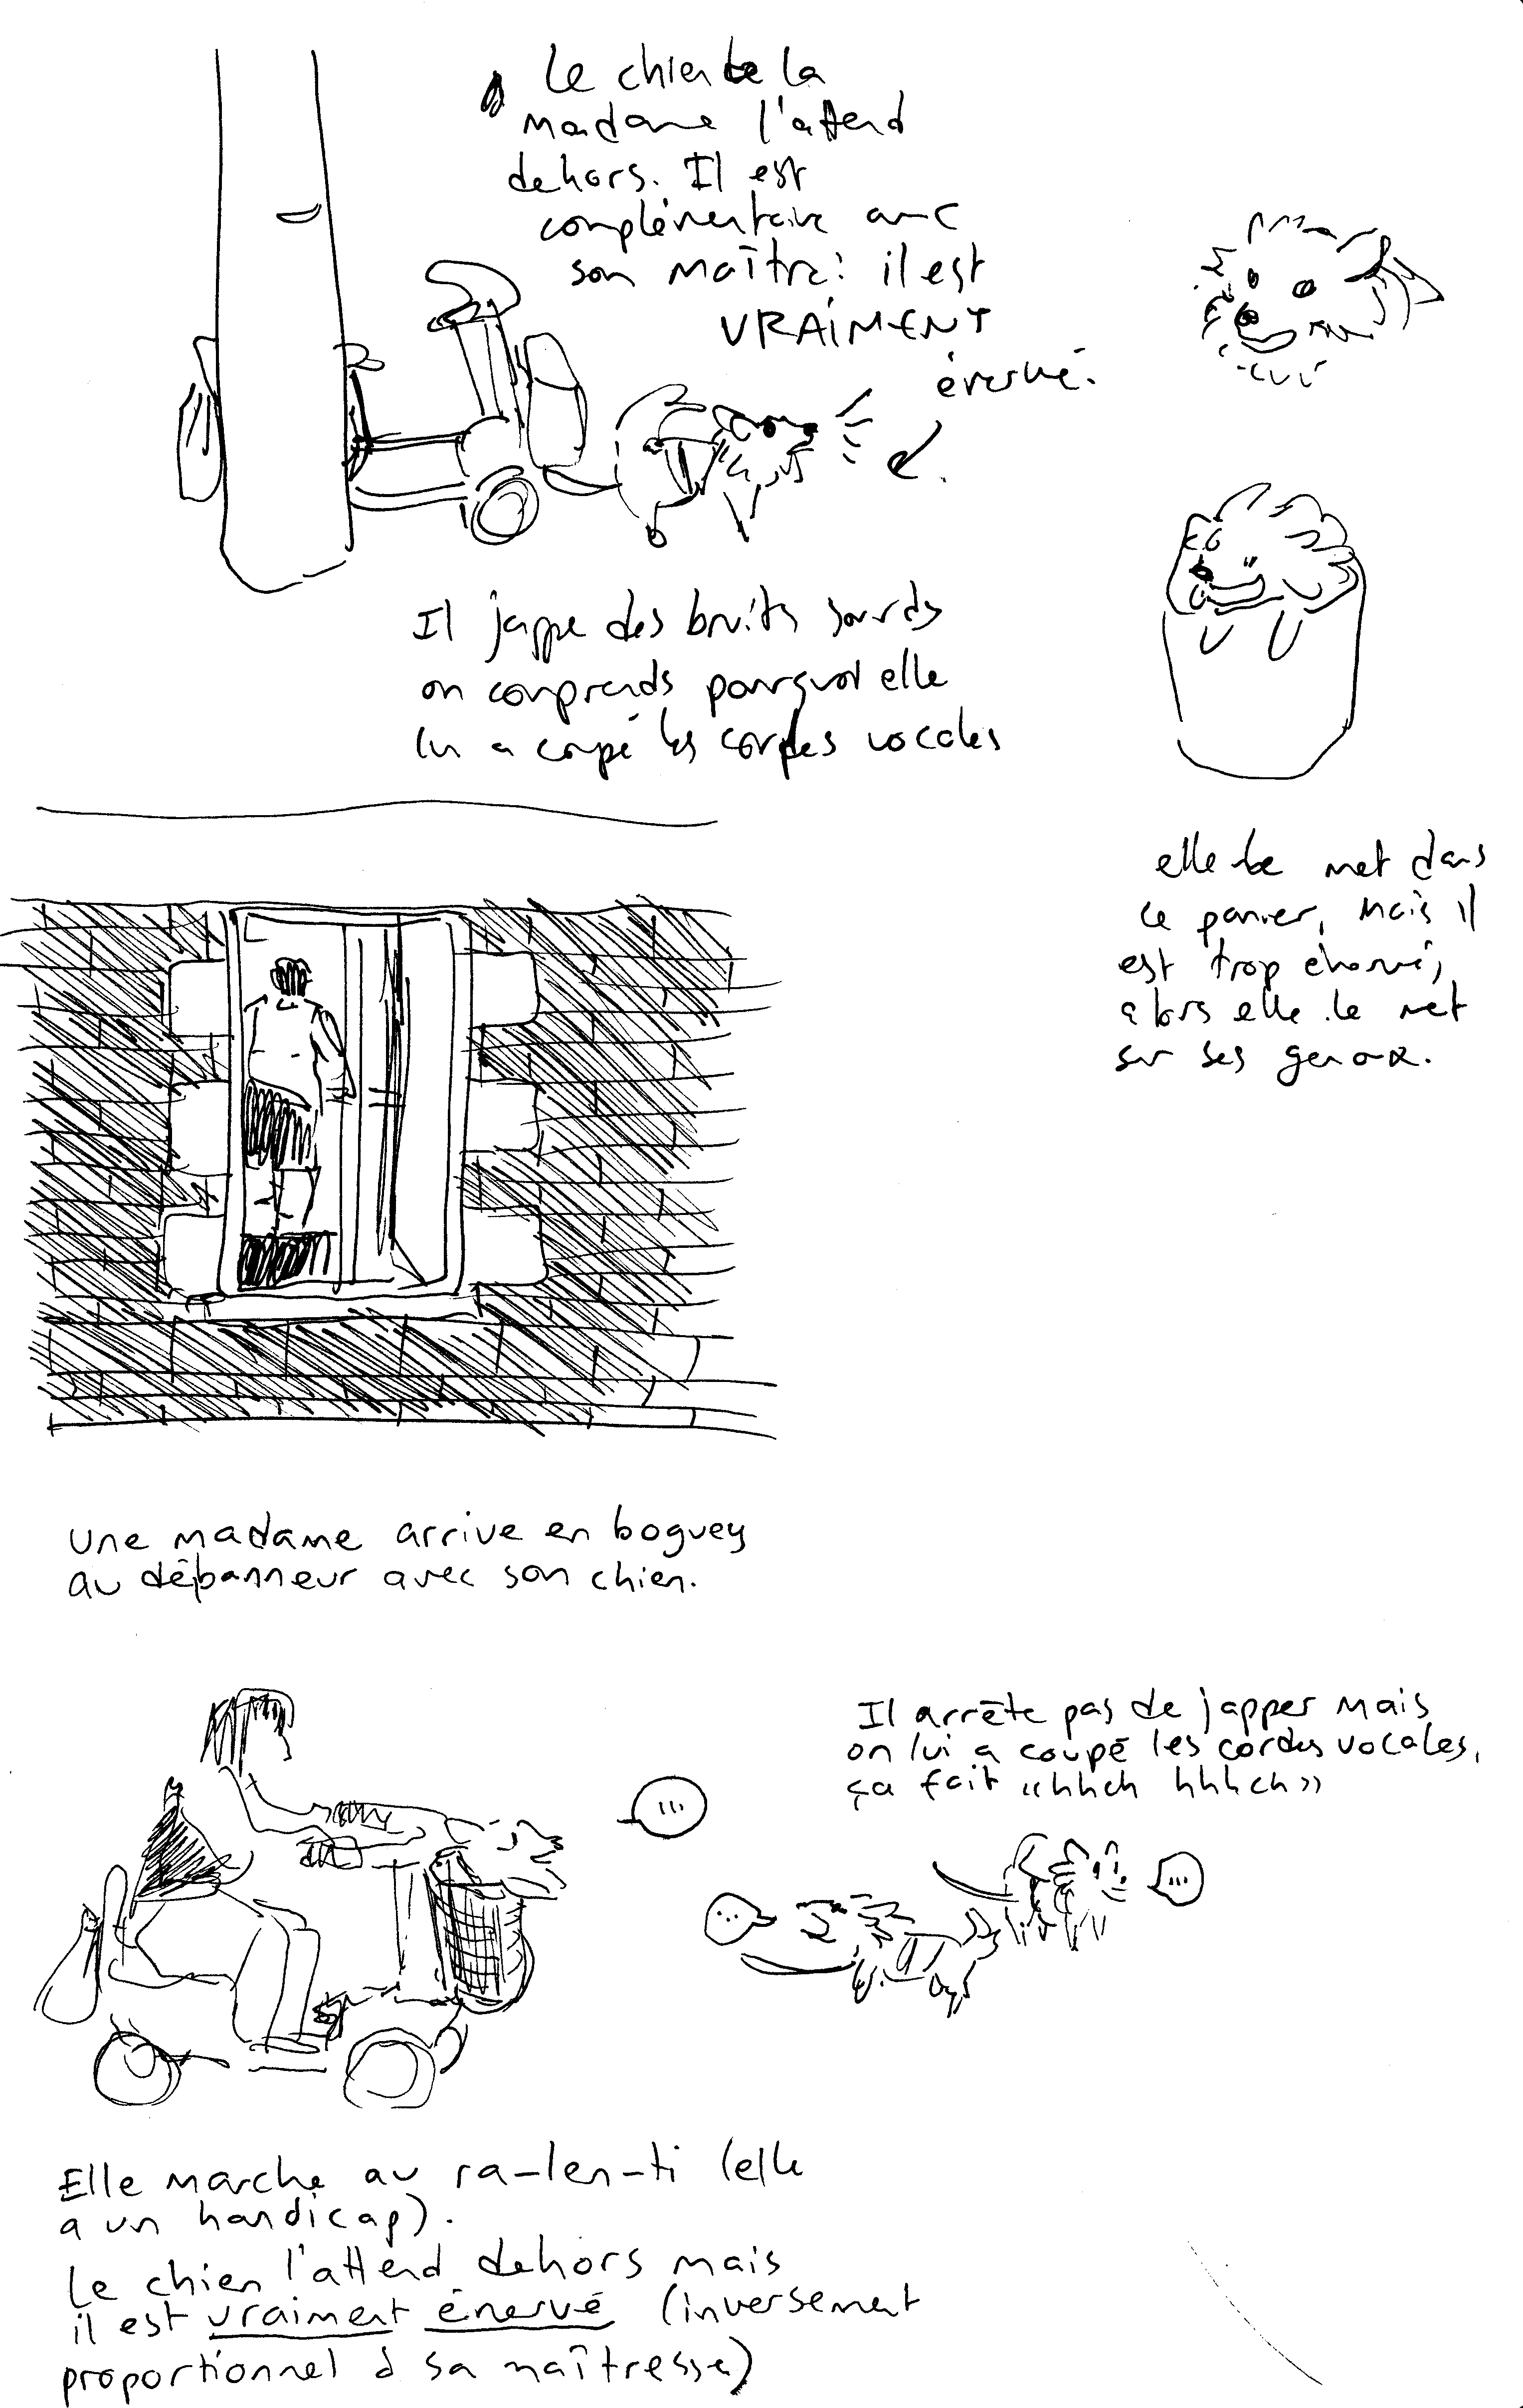 Le chien de la
madame l'attend
dehors. Il est
complémentaire avec
son maître: il est
VRAIMENT
énervé.
Il jappe des bruits sourds
on comprends pourquoi elle
lui a coupé les cordes vocales
elle le met dans
le panier, mais il
est trop énervé,
alors elle le met
sur ses genoux.
une madame arrive en boguey
au dépanneur avec son chien.
Il arrête pas de japper mais
on lui a coupé les cordes vocales,
ça fait «hhch hhhch»
...
...
...
Elle marche au ra-len-ti (elle
a un handicap).
Le chien l'attend dehors mais
il est vraiment énervé (inversement
proportionnel à sa maîtresse)